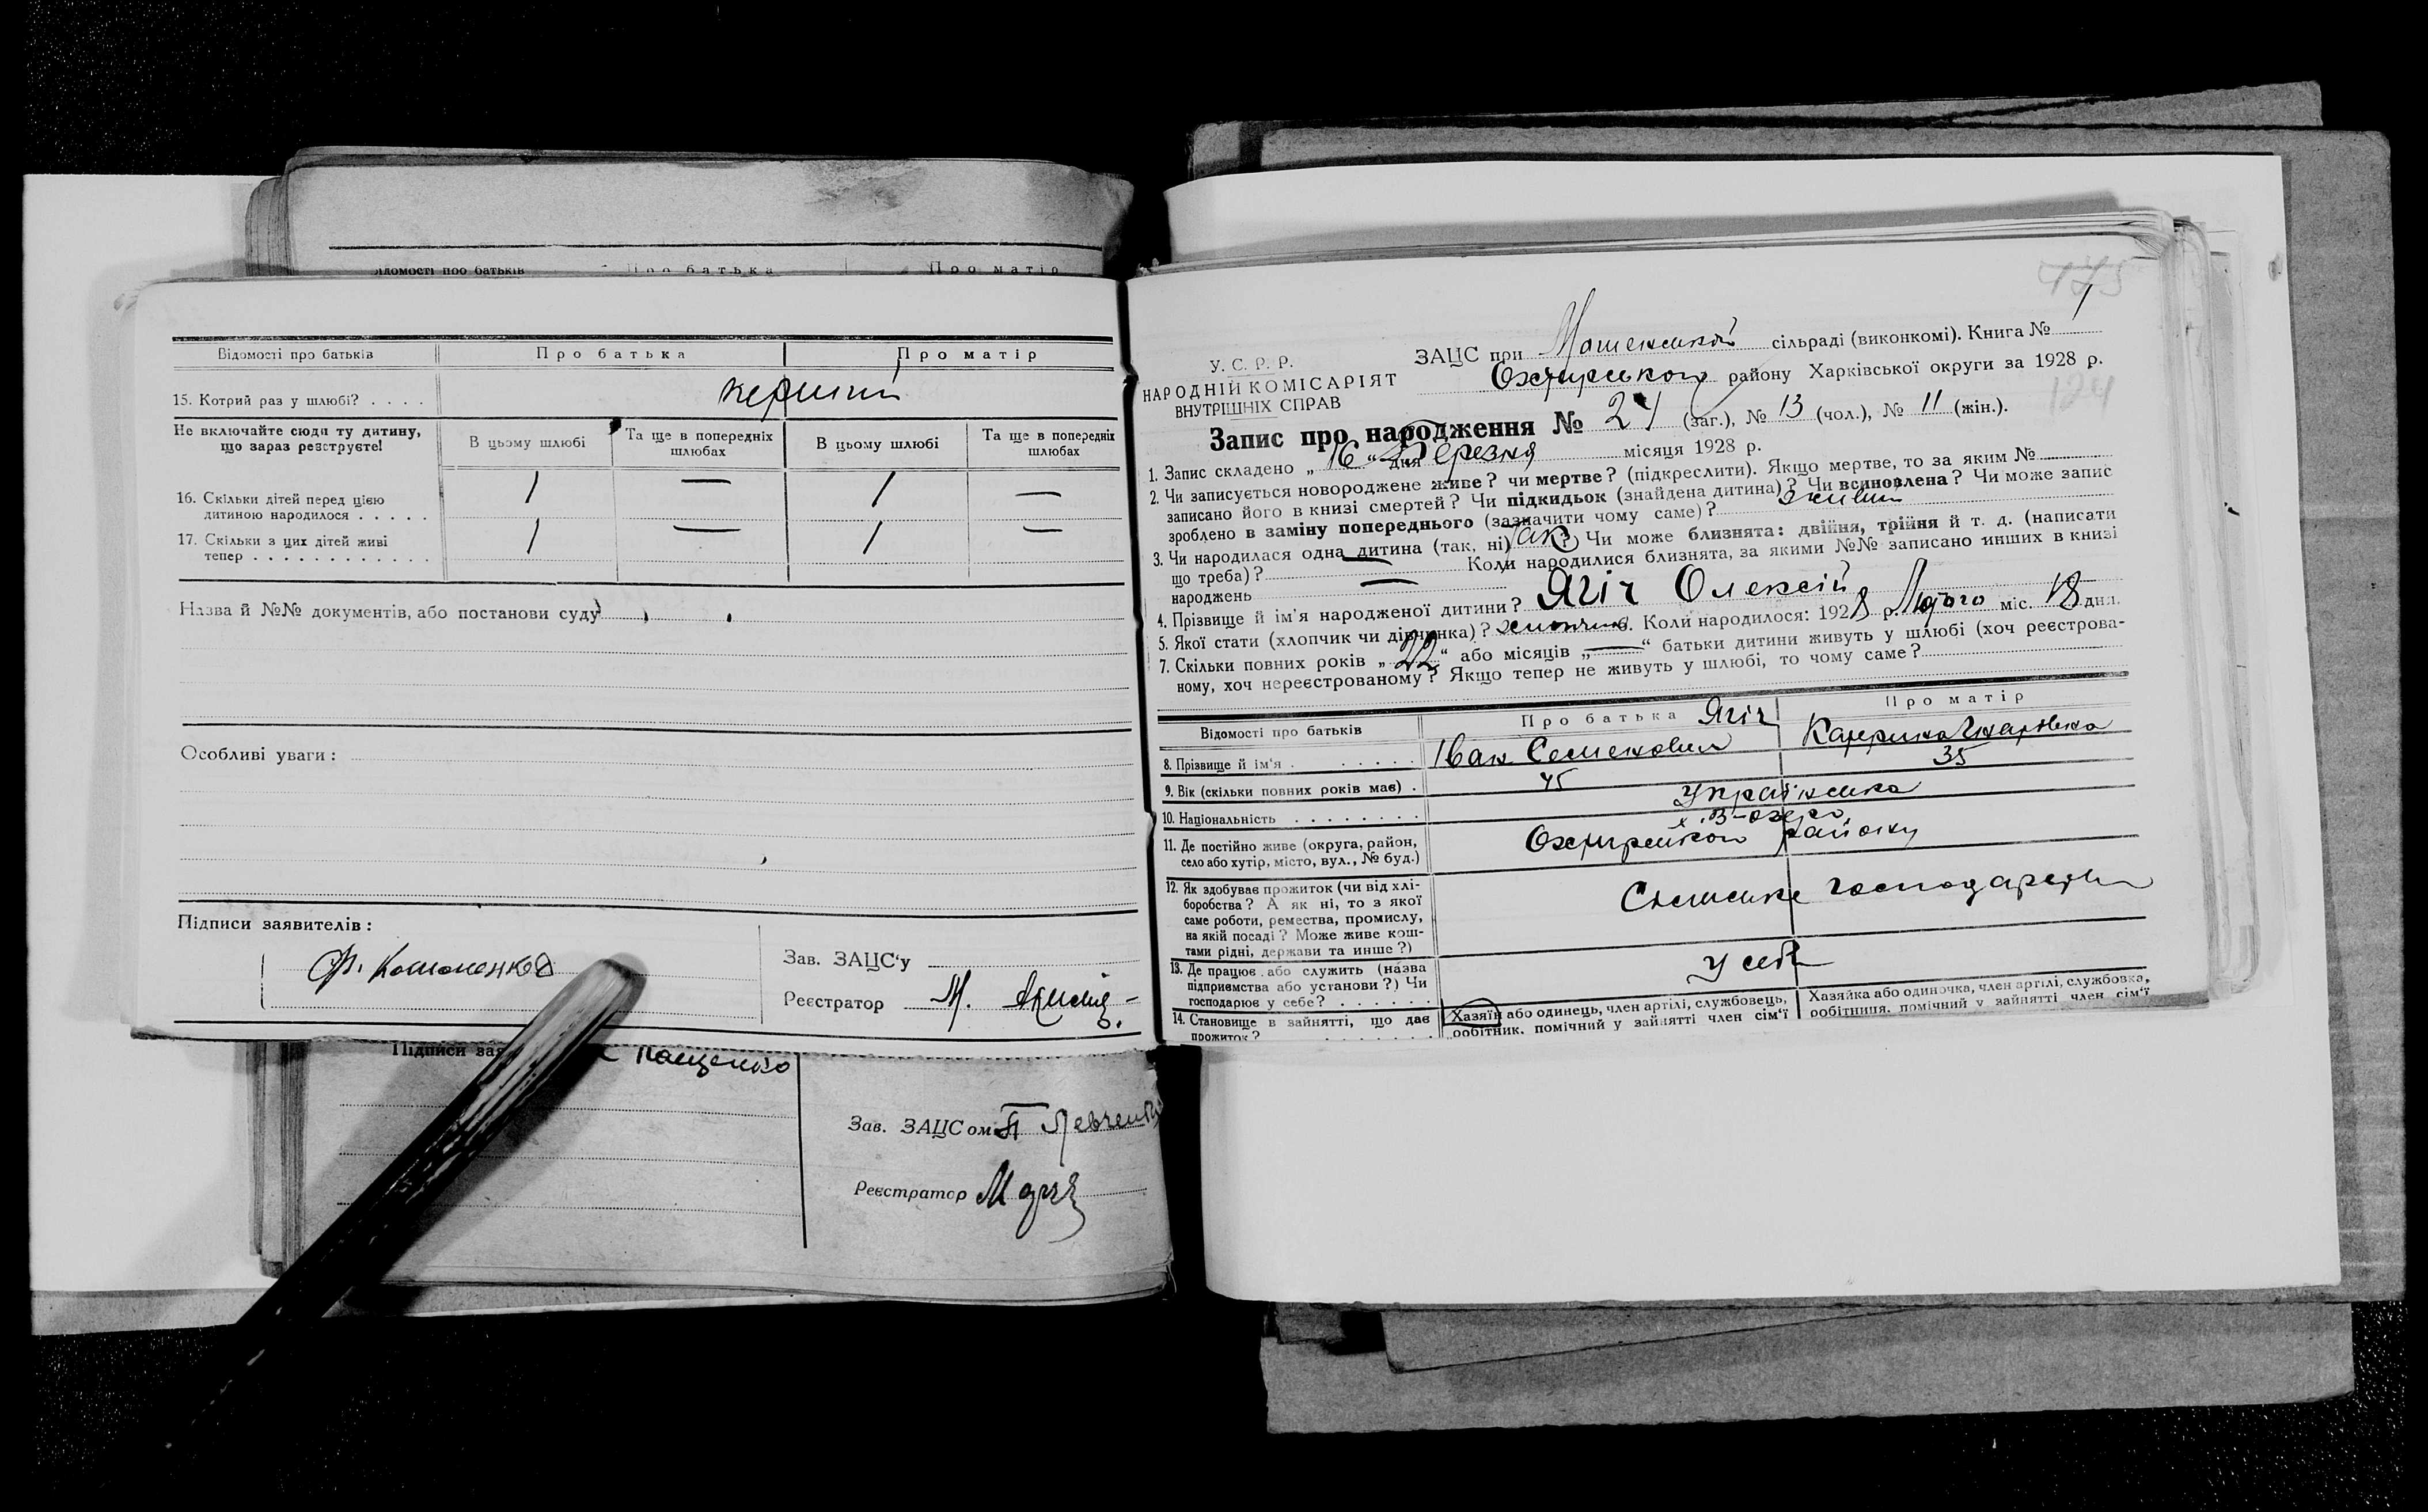 Відомості про батьків Про батька Про матір
15. Котрий раз у шлюбі? . . . . перший
Не включайте сюди ту дитину, що зараз реєструєте! В цьому шлюбі Та ще в попередніх шлюбах В цьому шлюбі Та ще в попередніх шлюбах
16. Скільки дітей перед цією
дитиною народилося . . . . . 1 — 1 —
17. Скільки з цих дітей живі
тепер . . . . . . . . . . . . 1 — 1 —
Назва й №№ документів, або постанови суду
Особливі уваги:
Підписи заявителів:
Зав. ЗАЦС'у
Реєстратор М.
Підписи зая
Пащенко
Зав. ЗАЦСом П Левченко
Реєстратор
175
У. С. Р. Р.
НАРОДНІЙ КОМІСАРІЯТ
ВНУТРІШНІХ СПРАВ
ЗАЦС при сільраді (виконкомі). Книга № 1
Охтирського району Харківської округи за 1928 р.
124
Запис про народження № 24 (заг.), № 13 (чол.), № 11 (жін.).
1. Запис складено „16“ дня Березня місяця 1928 р.
2. Чи записується новороджене живе? чи мертве? (підкреслити). Якщо мертве, то за яким №
записано його в книзі смертей? Чи підкидьок (знайдена дитина)? Чи всиновлена? Чи може запис
зроблено в заміну попереднього (зазначити чому саме)? живий
3. Чи народилася одна дитина (так, ні) так? Чи може близнята: двійня, трійня й т. д. (написати
що треба)? — Коли народилися близнята, за якими №№ записано инших в книзі
народжень —
4. Прізвище й ім'я народженої дитини? Ягіч Олексій
5. Якої стати (хлопчик чи дівчинка)? хлопчик 6. Коли народилося: 1928 р. Лютого міс. 18 дня.
7. Скільки повних років „22“ або місяців „—“ батьки дитини живуть у шлюбі (хоч реєстрова-
ному, хоч нереєстрованому? Якщо тепер не живуть у шлюбі, то чому саме?
Відомості про батьків Про батька Про матір
Ягіч
8. Прізвище й ім'я . . . . . . Іван Семенович Катерина
9. Вік (скільки повних років має) . 45 35
10. Національність . . . . . . . . Українська
11. Де постійно живе (округа, район,
село або хутір, місто, вул., № буд.) Охтирського району
12. Як здобуває прожиток (чи від хлі-
боробства? А як ні, то з якої
саме роботи, ремества, промислу,
на якій посаді? Може живе кош-
тами рідні, держави та инше?) Сільське господарство
13. Де працює або служить (назва
підприємства або установи?) Чи
господарює у себе? . . . . . . У себе
14. Становище в зайнятті, що дає
прожиток? . . . . . . .
Хазяїн або одинець, член артілі, службовець,
робітник, помічний у зайнятті член сім'ї
Хазяйка або одиночка, член артілі, службовка,
робітниця, помічний у зайнятті член сім'ї